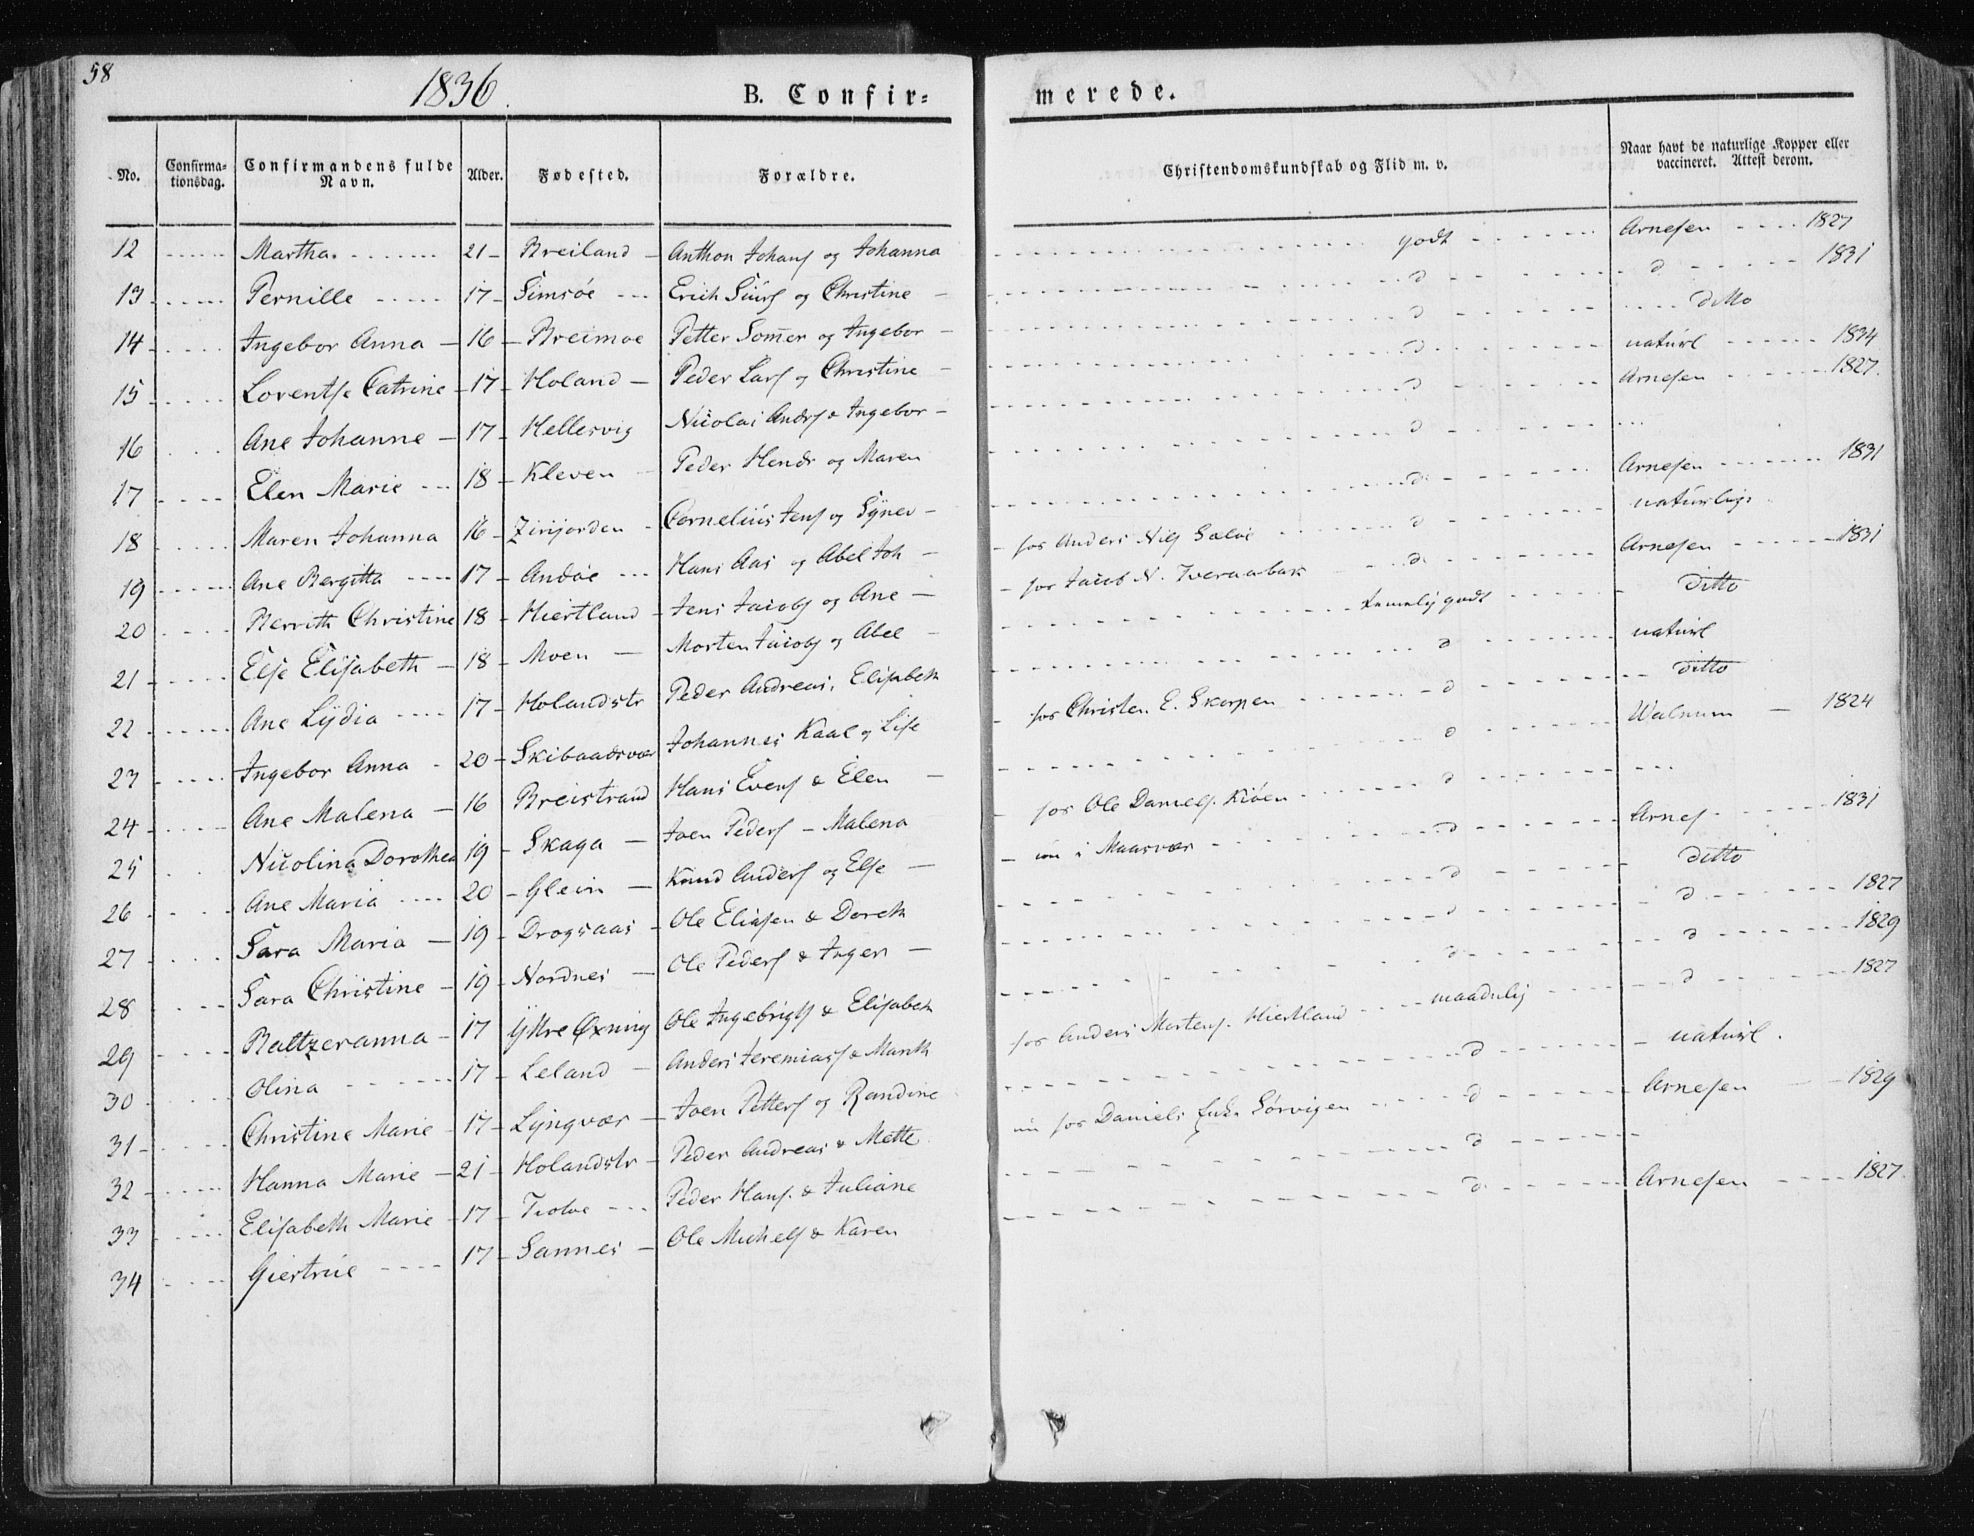 58
1836.
B. Confir-
merede.
No.
Confirma-
tionsdag.
Confirmandens fulde
Navn.
Alder.
Fødested.
Forældre.
Christendomskundskab og Flid m. v.
Naar havt de naturlige Kopper eller
vaccineret. Attest derom.
12 Martha 21 Breiland Anthon Johans og Johanna godt Arnesen 1827
13 Pernille 17 Simsøe Erich Siurs og Christine d d 1831
14 Ingebor Anna 16 Breimoe Petter Somer og Ingebor d ditto
15 Lorentse Catrine 17 Holand Peder Lars og Christine d naturl 1834
16 Ane Johanne 17 Hellesvig Nicolai Anders & Ingebor d Arnesen 1827.
17 Elen Marie 18 Kleven Peder Hendr og Maren d
18 Maren Johanna 16 Cornelius Jens og Synev d Arnesen 1831
19 Ane Bergitta 17 Andøe Hans Aas og Abel Joh for Anders Nils d naturligs
20 Berrith Christine 18 Hiertland Jens Jacobs og Ane for Jacob N. d Arnesen 1831
21 Else Elisabeth 18 Moen Morten Jacobs og Abel temelig godt ditto
22 Ane Lydia 17 Holandstr Peder Andreas, Elisabeth d naturl
23 Ingebor Anna 20 Skibaadsvær Johannes Kaal og Lise for Christen E. Skorpen d ditto
24 Ane Malena 16 Breistrand Hans Evens & Elen d Walnum 1824
25 Nicolina Dorothea 19 Skaga Joen Peders - Malena for Ole Daniels. Kiøen d
26 Ane Maria 20 Glein Knud Anders og Else i Maasvær d Arnes 1831
27 Sara Maria 19 Drogsaas Ole Eliasen & Doreth d ditto
28 Sara Christine 19 Nordnes Ole Peders & Inger d d 1827
29 Baltzeranna 17 Yttre Øxning Ole Ingebrigts & Elisabeth d d 1829
30 Olina 17 Leland Anders Jeremias & Marth for Anders Mortens. Hiertland maadelig d 1827
31 Christine Marie 17 Lyngvær Joen Petters og Randine d naturl.
32 Hanna Marie 21 Holandstr Peder Andreas & Mette for Daniels Enke Sørvigen d Arnesen 1829
33 Elisabeth Marie 17 Peder Hans. & Juliane d
34 Giertrue 17 Sannes Ole Michels & Karen d Arnesen 1827.